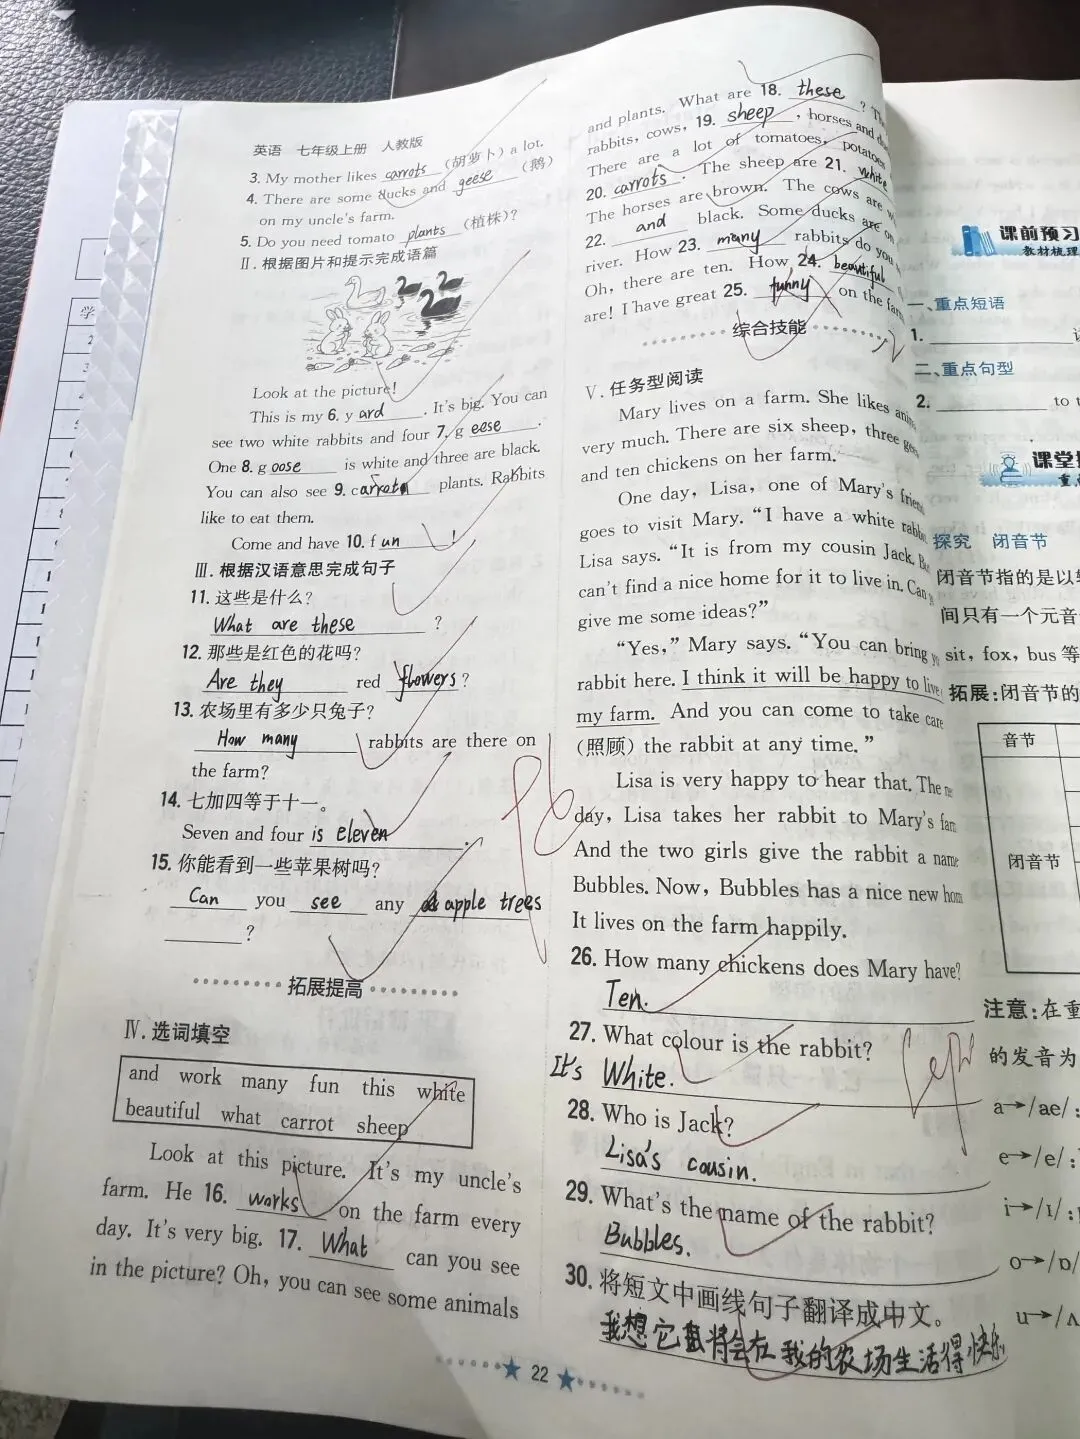 英语 七年级上册 人教版
3. My mother likes carrots (胡萝卜) a lot.
4. There are some ducks and geese (鹅)
on my uncle's farm.
5. Do you need tomato plants (植株)?
Ⅱ. 根据图片和提示完成语篇
Look at the picture!
This is my 6. y ard. It's big. You can
see two white rabbits and four 7. g eese.
One 8. g oose is white and three are black.
You can also see 9. c plants. Rabbits
like to eat them.
Come and have 10. f un!
Ⅲ. 根据汉语意思完成句子
11. 这些是什么?
What are these?
12. 那些是红色的花吗?
Are they red flowers?
13. 农场里有多少只兔子?
How many rabbits are there on
the farm?
14. 七加四等于十一。
Seven and four is eleven.
15. 你能看到一些苹果树吗?
Can you see any apple trees
?
拓展提高
Ⅳ. 选词填空
and work many fun this white
beautiful what carrot sheep
Look at this picture. It's my uncle's
farm. He 16. works on the farm every
day. It's very big. 17. What can you see
in the picture? Oh, you can see some animals
22
and plants. What are 18. these?
rabbits, cows, 19. sheep, horses and
There are a lot of tomatoes, potatoes
20. carrots. The sheep are 21. white
The horses are brown. The cows are
22. and black. Some ducks are on
river. How 23. many rabbits do you
Oh, there are ten. How 24. beautiful
are! I have great 25. funny on the farm
综合技能
Ⅴ. 任务型阅读
Mary lives on a farm. She likes
very much. There are six sheep, three
and ten chickens on her farm.
One day, Lisa, one of Mary's
goes to visit Mary. "I have a white
Lisa says. "It is from my cousin Jack.
can't find a nice home for it to live in. Can
give me some ideas?"
"Yes," Mary says. "You can bring
rabbit here. I think it will be happy to live
my farm. And you can come to take care
(照顾) the rabbit at any time."
Lisa is very happy to hear that. The
day, Lisa takes her rabbit to Mary's
And the two girls give the rabbit a name
Bubbles. Now, Bubbles has a nice new
It lives on the farm happily.
26. How many chickens does Mary have?
Ten.
27. What colour is the rabbit?
It's White.
28. Who is Jack?
Lisa's cousin.
29. What's the name of the rabbit?
Bubbles.
30. 将短文中画线句子翻译成中文。
我想它将会在我的农场生活得快乐
课前预习
教材梳理
一、重点短语
1.
二、重点句型
2. to
课堂
重
探究 闭音节
闭音节指的是以
间只有一个元音
sit, fox, bus 等
拓展:闭音节的
音节
闭音节
注意:在重
的发音为
a→/ae/;
e→/e/;
i→/ɪ/;
o→/ɒ/
u→/ʌ
学